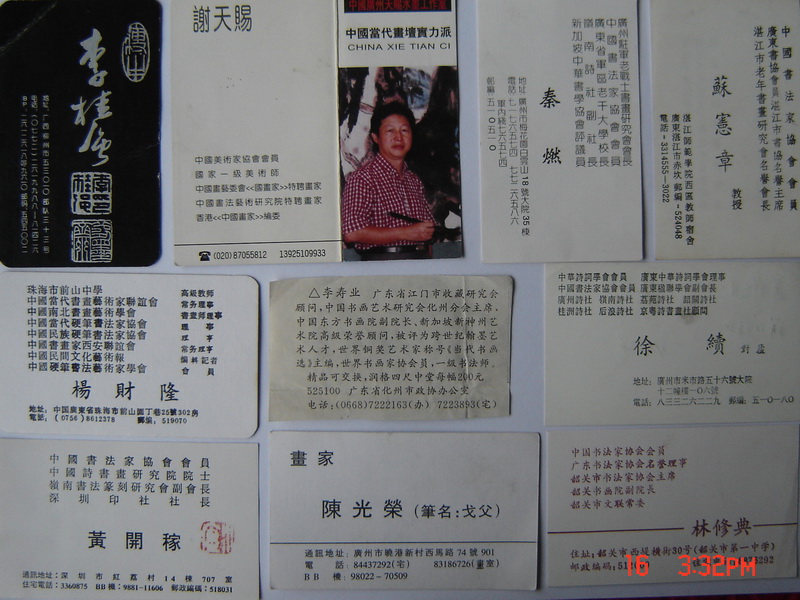 李桂
谢天賜
中國美術家協會會員
國家一級美術師
中國畫藝委會<<國畫家>>特聘畫家
中國書法藝術研究院特聘畫家
香港<<中國畫家>>編委
(020)87055812 13925109933
中國當代畫壇實力派
CHINA XIE TIAN CI
廣州駐軍老戰士書畫研究會會長
中國書法家協會會員
廣東省軍區老干大學校長
嶺南詩社副社長
新加坡中華書學協會評議員
秦燃
地址:廣州市梅花園白雲山18號大院35棟
郵編:五一〇五一〇
中國書法家協會會員
廣東書協會員湛江市書協名譽主席
湛江市老年書畫研究會名譽會長
蘇憲章
教授
湛江師範學院西區教師宿舍
廣東湛江市赤坎 郵编-524048
電話-33(4555-3022
珠海市前山中學 高級教师
中國當代書畫藝術家聯誼會 常务理事
中國南北書畫藝術學會 書畫师理事
中國當代硬筆書法家協會 理事
中國民族硬筆書法家協會 理事
中國書畫家西安聯誼會 常务理事
中國民間文化藝術報 編輯記者
中國硬筆書法家藝術學會 會員
楊財隆
地址:中国廣東省珠海市前山園丁巷25號302房
電話:(0756)8612378 郵編:519070
△李寿业 广东省江门市收藏研究会
顾问,中国书画艺术研究会化州分会主席、
中国东方书画院副院长、新加坡新神州艺
术院高级荣誉顾问,被评为跨世纪翰墨艺
术人才,世界铜奖艺术家称号《当代书画
选》主编,世界书画家协会会员,一级书法师。
精品可交换,润格四尺中堂每幅200元
525100 广东省化州市政协办公室
电话:(0668)7222163(办) 7223893(宅)
中華詩詞學會會員 廣東中華詩詞學會理事
中國楹聯學會會員 廣東楹聯學會副會長
廣州詩社 嶺南詩社 荔苑詩社 韶關詩社
桂洲詩社 后浪詩社 京粤詩書畫社顧問
徐續
地址:廣州市米市路五十六號大院
十二幢樓一〇六號
電話:八三三二六二二九 郵编:五一〇一八〇
中國書法家協會會員
中國詩書畫研究院院士
嶺南書法篆刻研究會副會長
深圳印社社長
黃開稼
通訊地址:深圳市紅荔村14棟707室
住宅電話:3369875 BB機:9881-11606 郵政編碼:518031
畫家
陳光榮(筆名:戈父)
通訊地址:廣州市曉港新村西馬路74號901
電話:84437292(宅) 83186726(畫室)
BB機:98022-70509
中国书法家协会会员
广东书法家协会名誉理事
韶关市书法家协会主席
韶关书画院副院长
韶关市文联常委
林修典
住址:韶关市西堤横街30号(韶关市第一中学)
邮政编码:
16 3:32PM